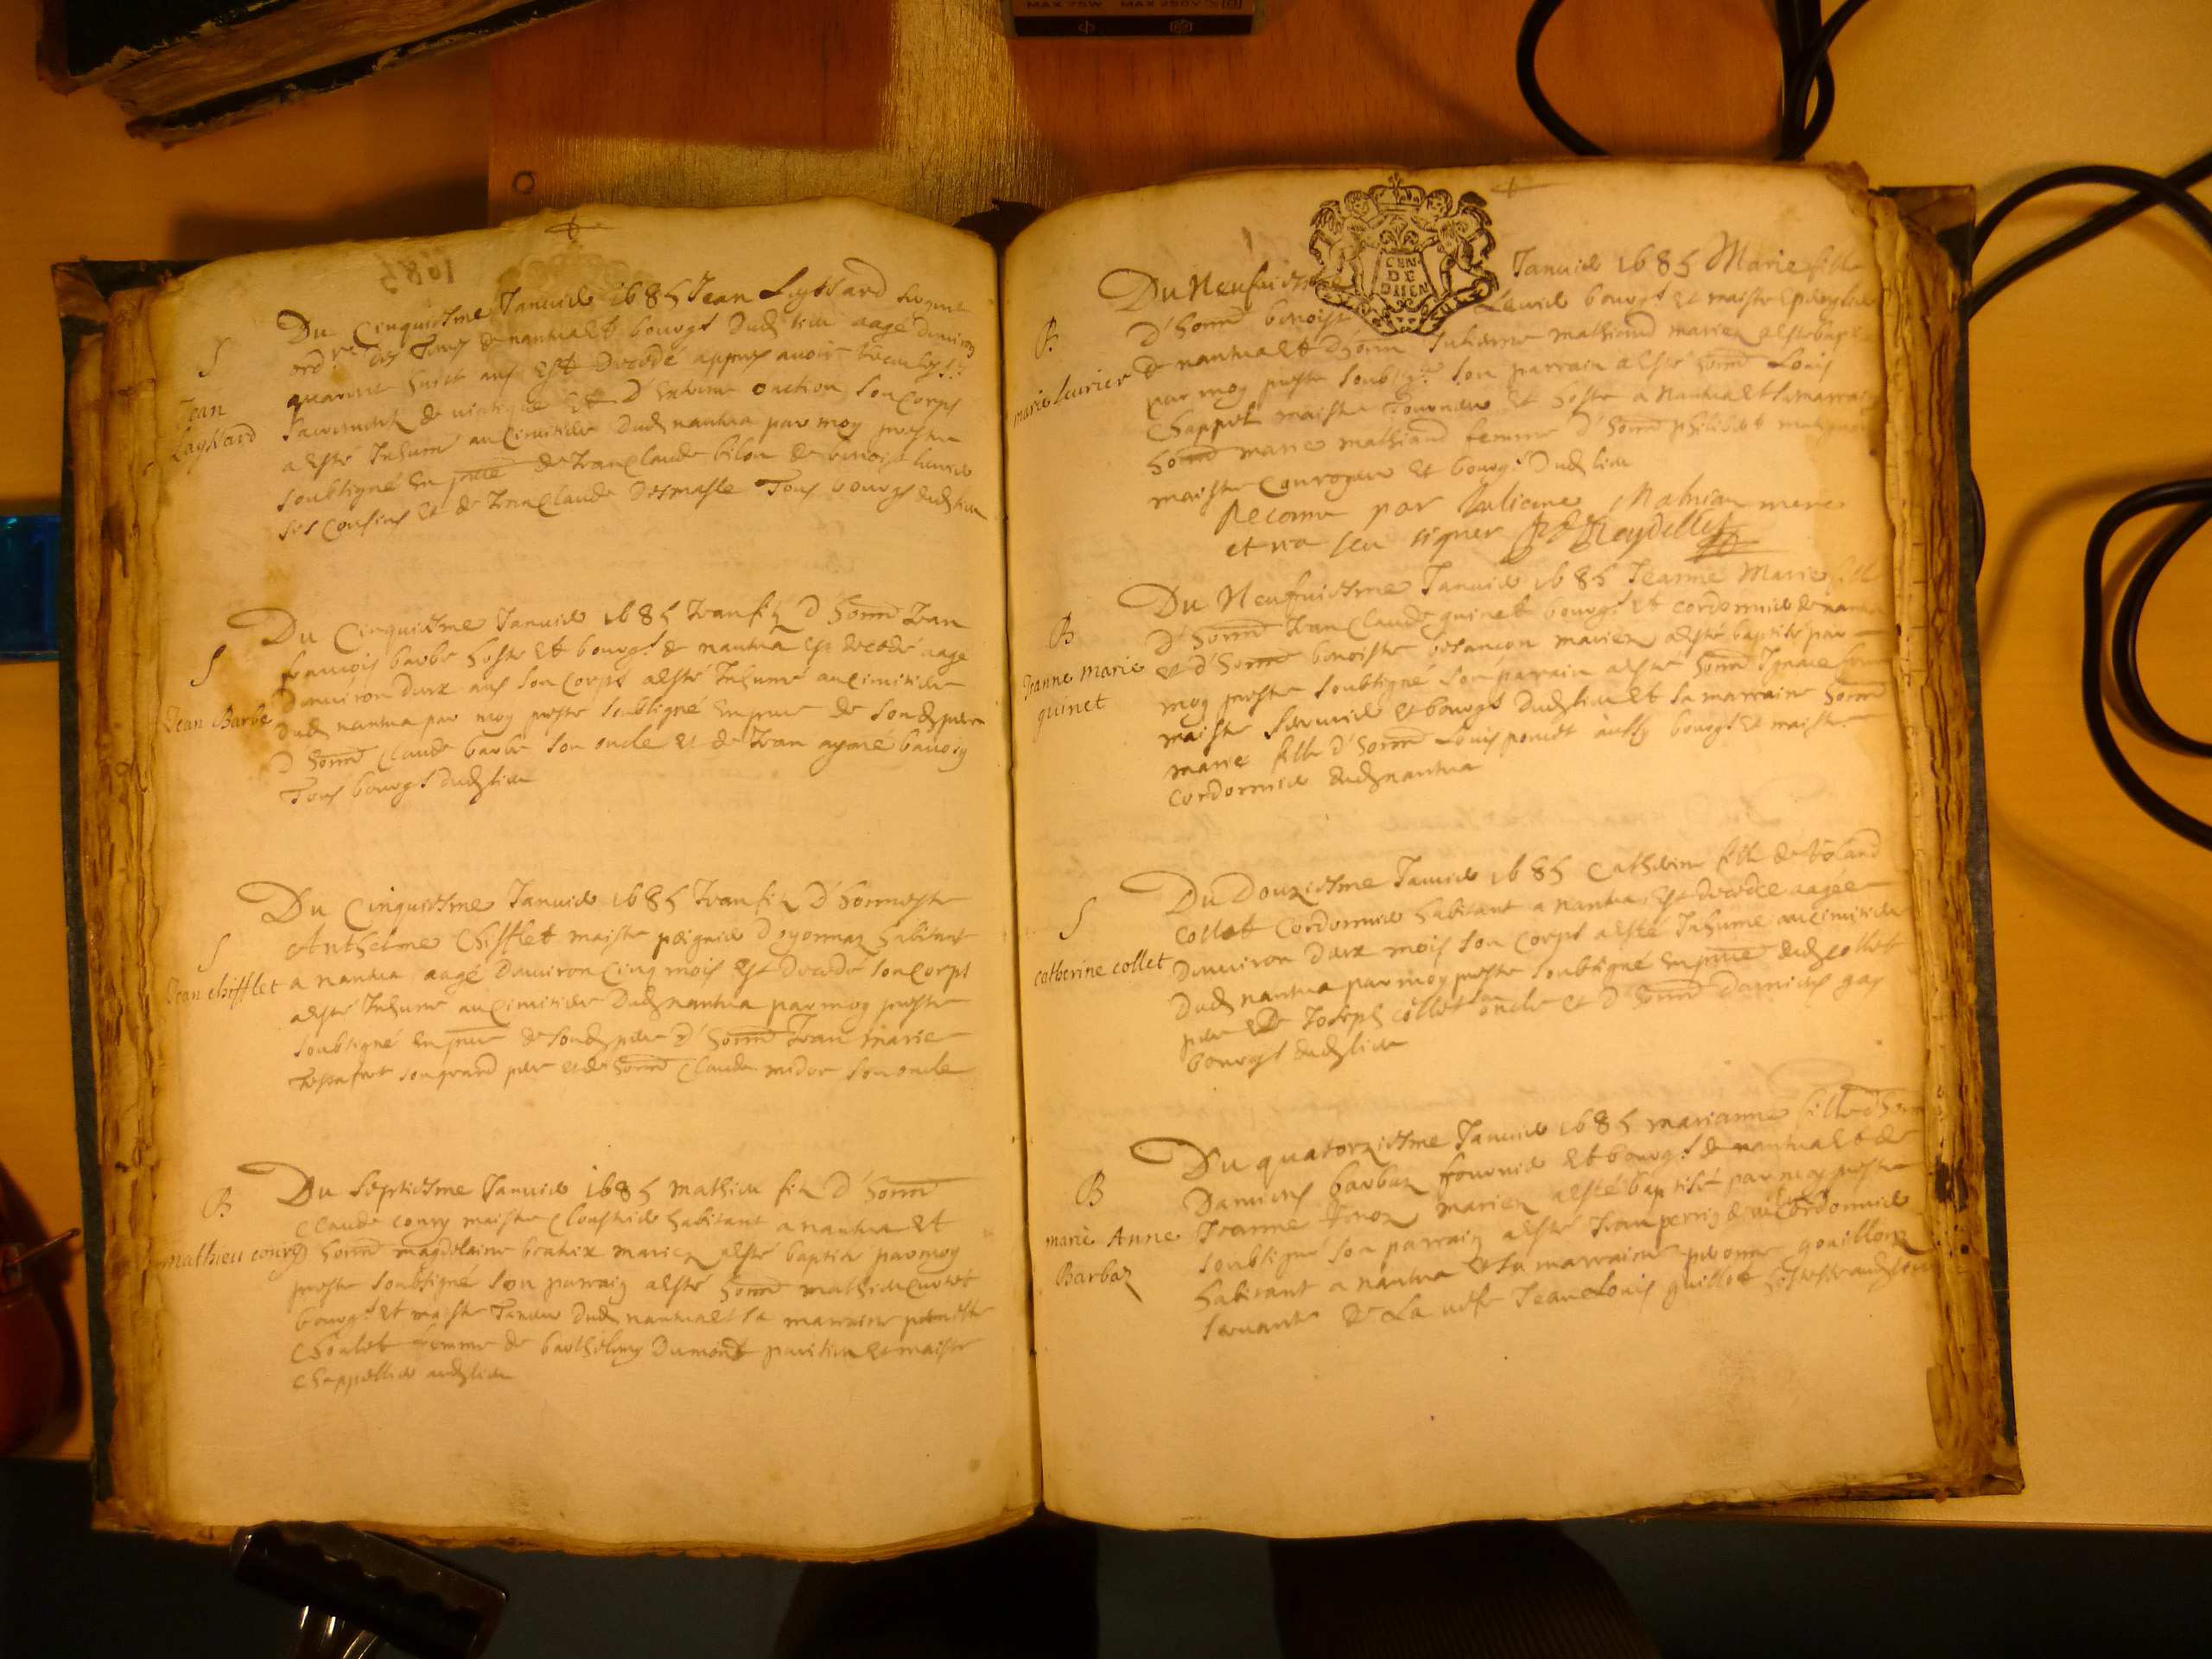 MAX 75W MAX 250V
1685
S
Jean
Layssard
Du Cinquiesme Janvier 1685 Jean Layssard
des Terres de nantua et bourgs dud. lieu aagé denviron
quarante huict ans est decedé appres avoir receu les Sts
Sacrements de viatique et d'Extreme onction son Corps
a esté Inhumé au Cimitiere dud. nantua par moy prestre
soubsigné En de Jean Claude bilon de benoist
ses cousins et de Jean Claude Desmasle Tous bourgs dud. lieu
S
Jean Barbe
Du Cinquiesme Janvier 1685 Jean fils d'honn Jean
francois barbe hoste et bourgs de nantua est decedé aagé
Denviron deux ans son Corps a esté Inhumé au Cimitiere
Dud. nantua par moy prestre soubsigné En de sond. pere
d'honn Claude barbe son oncle et de Jean aymé
Tous bourgs dud. lieu
S
Jean chifflet
Du Cinquiesme Janvier 1685 Jean fils d'honneste
Anthelme Chifflet maistre peignier d'oyonnaz habitant
a nantua aagé Denviron Cinq mois est decedé son Corps
a esté Inhumé au Cimitiere Dud. nantua par moy prestre
soubsigné En de sond. pere d'honn Jean marie
son grand pere et de honn Claude midor son oncle
B
mathieu coury
Du Septiesme Janvier 1685 mathieu fils d'honn
Claude coury maistre Cloustrier habitant a nantua et
d'honn magdelaine beatrix mariez a esté baptisé par moy
prestre soubsigné son parraing a esté honn mathieu
bourgs et maistre Taneur Dud. nantua et sa marraine
Choulet femme de barthelemy Dumont et maistre
Chappellier aud. lieu
B
marie leurier
Du Neufuiesme Janvier 1685 Marie fille
d'honn benoist Leurier bourgs et maistre
de nantua et d'honn Julienne mathiand mariez a esté bapt
par moy prestre soubsigné son parrain a esté honn Louis
Chappel maistre Tourneur et hoste a Nantua et sa marraine
honn marie mathiand femme d'honn philibert
maistre Couroyeur et bourgs Dud. lieu
CEN.
DE
DAIEN
Reconnu par Juliane Mathian mere
et n'a seu signer Reydellet
B
Jeanne Marie
quinet
Du Neufuiesme Janvier 1685 Jeanne Marie fille
d'honn Jean Claude quinet bourgs et cordonnier de nantua
et d'honn benoiste besancon mariez a esté baptisée par
moy prestre soubsigné son parrain a esté honn Ignace
maistre Serrurier et bourgs Dud. lieu et sa marraine honn
marie fille d'honn Louis poncet aussy bourgs et maistre
cordonnier dud. nantua
S
catherine collet
Du Douziesme Janvier 1685 Catherine fille de
collet Cordonnier habitant a nantua est decedée aagée
Denviron deux mois son Corps a esté Inhumé au Cimitiere
Dud. nantua par moy prestre soubsigné En dud. collet
pere de Joseph collet oncle et d'honn Damiens gay
bourgs dud. lieu
B
marie Anne
Barbaz
Du quatorziesme Janvier 1685 marianne fille d'honn
Damiens barbaz fournier et bourgs de nantua et de
Jeanne mariez a esté baptisée par moy prestre
soubsigné son parraing a esté Jean cordonnier
habitant a nantua et sa marraine pernonne gouillon
servante de La vefve Jean Louis guillot hostesse aud. lieu